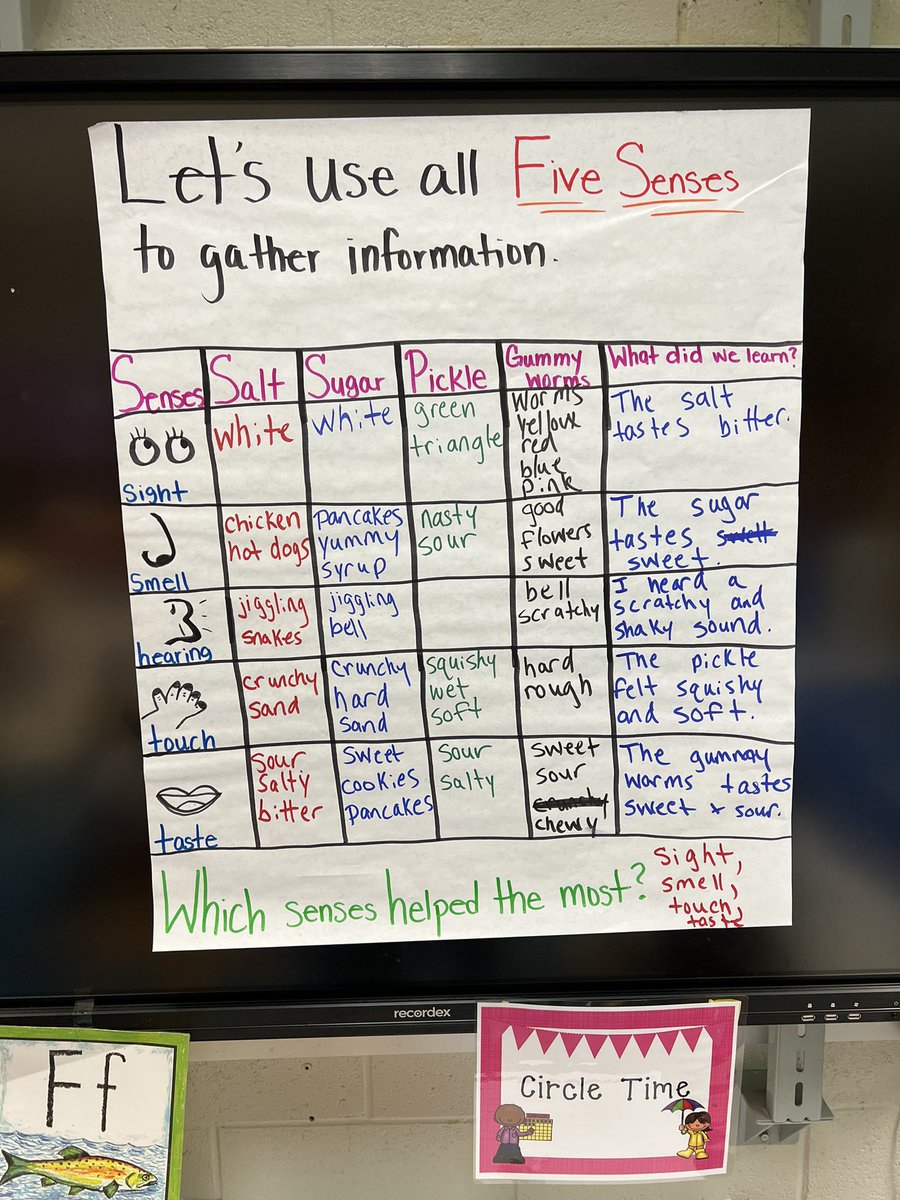 Let's use all Five Senses
to gather information.
Senses Salt Sugar Pickle Gummy worms What did we learn?
Sight
white
white
green
triangle
worms
yelloux
red
blue
pink
The salt
tastes bitter.
Smell
chicken
hot dogs
pancakes
yummy
syrup
nasty
sour
good
flowers
sweet
The sugar
tastes
sweet.
hearing
jiggling
snakes
jiggling
bell
bell
scratchy
I heard a
scratchy and
shaky sound.
touch
crunchy
sand
crunchy
hard
sand
squishy
wet
soft
hard
rough
The pickle
felt squishy
and soft.
taste
sour
salty
bitter
sweet
cookies
pancakes
sour
salty
sweet
sour
crunchy
chewy
The gummy
worms tastes
sweet + sour.
Which senses helped the most?
Sight,
smell,
touch,
taste
recordex
Ff
Circle Time